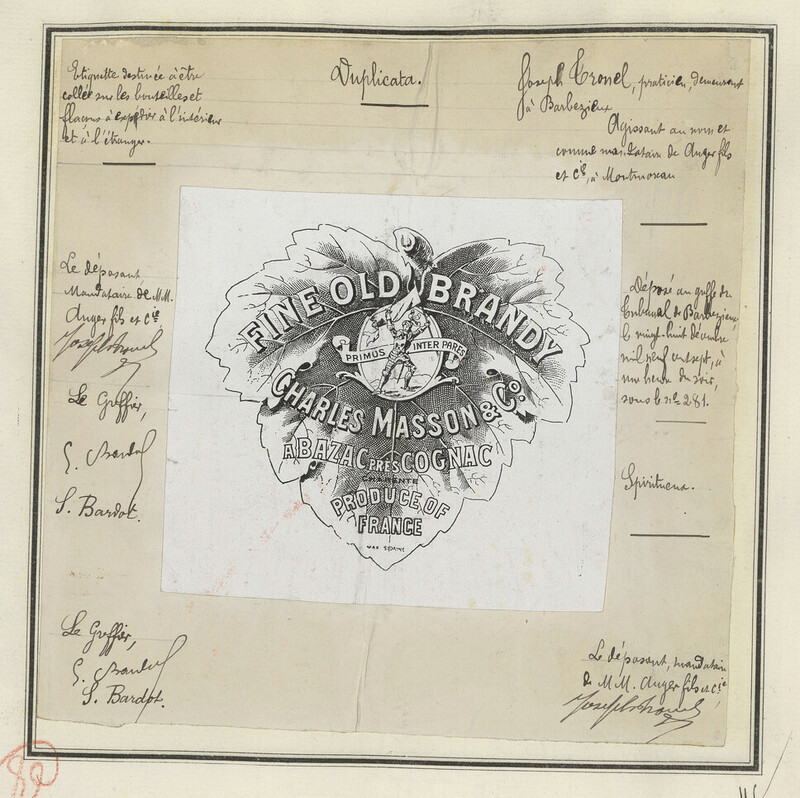 Duplicata.
Etiquette destinée à être
collée sur les bouteilles et
flacons à expédier à l'intérieur
et à l'étranger.
Joseph Tronel, praticien, demeurant
à Barbezieux
Agissant au nom et
comme mandataire de Auger fils
et Cie, à Montmoreau
Le déposant
Mandataire de M.M.
Auger fils et Cie
Le Greffier,
S. Bardot.
Déposé au greffe du
Tribunal de Barbezieux
le vingt-huit décembre
mil neuf cent sept, à
une heure du soir,
sous le no 281.
Spiritueux.
FINE OLD BRANDY
PRIMUS INTER PARES
CHARLES MASSON & Co.
A BAZAC PRÈS COGNAC
CHARENTE
PRODUCE OF
FRANCE
Le Greffier,
S. Bardot.
Le déposant, mandataire
de M.M. Auger fils et Cie